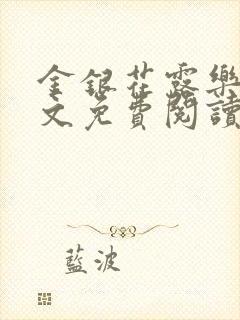 金銀花露樂
文免費閱讀
藍波